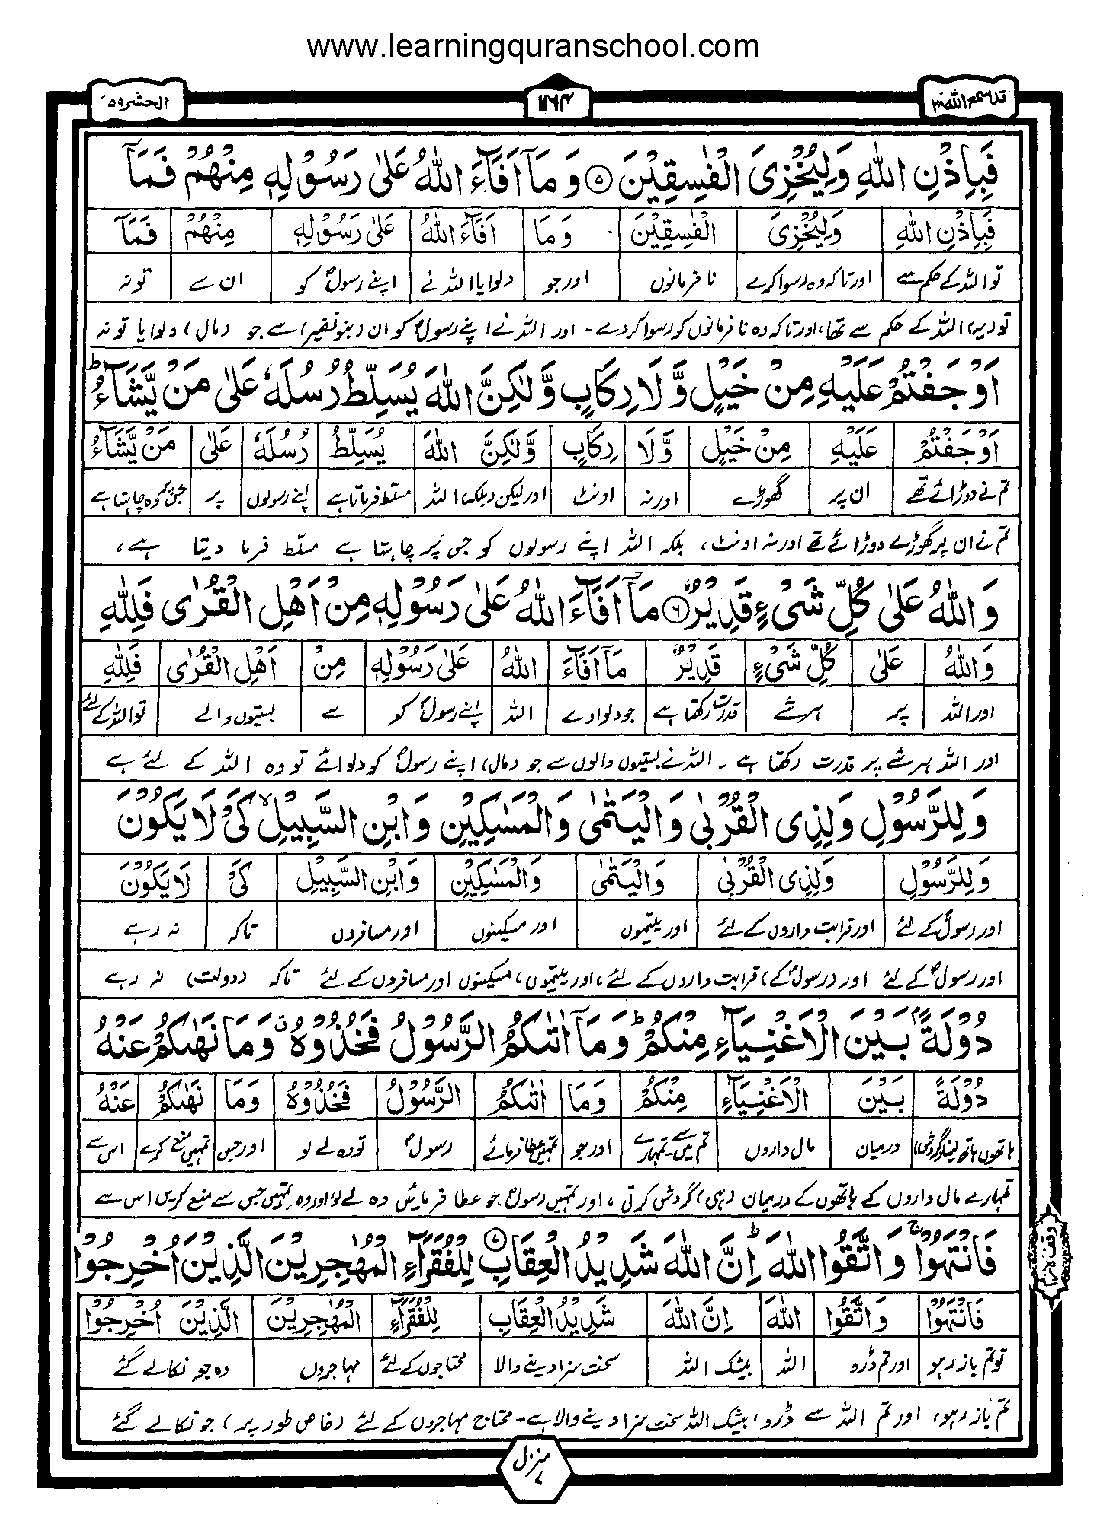 www.learningquranschool.com
قد سمع الله ۲۸
الحشر ۵۹
فَبِاِذْنِ اللّٰهِ وَلِيُخْزِىَ الْفٰسِقِيْنَ ۵ وَمَاۤ اَفَآءَ اللّٰهُ عَلٰى رَسُوْلِهٖ مِنْهُمْ فَمَاۤ
فَبِاِذْنِ اللّٰهِ وَلِيُخْزِىَ الْفٰسِقِيْنَ وَمَا اَفَآءَ اللّٰهُ عَلٰى رَسُوْلِهٖ مِنْهُمْ فَمَاۤ
تو اللہ کے حکم سے اور تاکہ وہ رسوا کرے نافرمانوں اور جو دلوایا اللہ نے اپنے رسولؐ کو ان سے تو نہ
تو (یہ) اللہ کے حکم سے تھا، اور تاکہ وہ نافرمانوں کو رسوا کردے۔ اور اللہ نے اپنے رسولؐ کو ان (بنو نضیر) سے جو (مال) دلوایا تو نہ
اَوْجَفْتُمْ عَلَيْهِ مِنْ خَيْلٍ وَّلَا رِكَابٍ وَّلٰكِنَّ اللّٰهَ يُسَلِّطُ رُسُلَهٗ عَلٰى مَنْ يَّشَآءُ ؕ
اَوْجَفْتُمْ عَلَيْهِ مِنْ خَيْلٍ وَّلَا رِكَابٍ وَّلٰكِنَّ اللّٰهَ يُسَلِّطُ رُسُلَهٗ عَلٰى مَنْ يَّشَآءُ
تم نے دوڑائے تھے ان پر گھوڑے اور نہ اونٹ اور لیکن (بلکہ) اللہ مسلط فرماتا ہے اپنے رسولوں پر جس کو وہ چاہتا ہے
تم نے ان پر گھوڑے دوڑائے تھے اور نہ اونٹ، بلکہ اللہ اپنے رسولوں کو جس پر چاہتا ہے مسلط فرما دیتا ہے،
وَاللّٰهُ عَلٰى كُلِّ شَىْءٍ قَدِيْرٌ ۶ مَاۤ اَفَآءَ اللّٰهُ عَلٰى رَسُوْلِهٖ مِنْ اَهْلِ الْقُرٰى فَلِلّٰهِ
وَاللّٰهُ عَلٰى كُلِّ شَىْءٍ قَدِيْرٌ مَاۤ اَفَآءَ اللّٰهُ عَلٰى رَسُوْلِهٖ مِنْ اَهْلِ الْقُرٰى فَلِلّٰهِ
اور اللہ پر ہر شے قدرت رکھتا ہے جو دلوادے اللہ اپنے رسولؐ کو سے بستیوں والے تو اللہ کے لئے
اور اللہ ہر شے پر قدرت رکھتا ہے۔ اللہ نے بستیوں والوں سے جو (مال) اپنے رسولؐ کو دلوائے تو وہ اللہ کے لئے ہے
وَلِلرَّسُوْلِ وَلِذِى الْقُرْبٰى وَالْيَتٰمٰى وَالْمَسٰكِيْنِ وَابْنِ السَّبِيْلِ كَىْ لَا يَكُوْنَ
وَلِلرَّسُوْلِ وَلِذِى الْقُرْبٰى وَالْيَتٰمٰى وَالْمَسٰكِيْنِ وَابْنِ السَّبِيْلِ كَىْ لَا يَكُوْنَ
اور رسولؐ کے لئے اور قرابت داروں کے لئے اور یتیموں اور مسکینوں اور مسافروں تاکہ نہ رہے
اور رسولؐ کے لئے اور (رسولؐ کے) قرابت داروں کے لئے، اور یتیموں، مسکینوں اور مسافروں کے لئے تاکہ (دولت) نہ رہے
دُوْلَةًۢ بَيْنَ الْاَغْنِيَآءِ مِنْكُمْ ؕ وَمَاۤ اٰتٰىكُمُ الرَّسُوْلُ فَخُذُوْهُ ۗ وَمَا نَهٰىكُمْ عَنْهُ
دُوْلَةً بَيْنَ الْاَغْنِيَآءِ مِنْكُمْ وَمَا اٰتٰىكُمُ الرَّسُوْلُ فَخُذُوْهُ وَمَا نَهٰىكُمْ عَنْهُ
ہاتھوں ہاتھ لینا (گردش) درمیان مال داروں تم میں سے تمہارے اور جو تمہیں عطا فرمائے رسولؐ تو وہ لے لو اور جس تمہیں منع کرے اس سے
تمہارے مال داروں کے ہاتھوں کے درمیان (ہی) گردش کرتی، اور تمہیں رسولؐ جو عطا فرمائیں وہ لے لو اور وہ تمہیں جس سے منع کریں اس سے
فَانْتَهُوْا ۚ وَاتَّقُوا اللّٰهَ ؕ اِنَّ اللّٰهَ شَدِيْدُ الْعِقَابِ ۷ لِلْفُقَرَآءِ الْمُهٰجِرِيْنَ الَّذِيْنَ اُخْرِجُوْا
فَانْتَهُوْا وَاتَّقُوا اللّٰهَ اِنَّ اللّٰهَ شَدِيْدُ الْعِقَابِ لِلْفُقَرَآءِ الْمُهٰجِرِيْنَ الَّذِيْنَ اُخْرِجُوْا
تو تم باز رہو اور تم ڈرو اللہ بیشک اللہ سخت سزا دینے والا محتاجوں کے لئے مہاجروں وہ جو نکالے گئے
تم باز رہو، اور تم اللہ سے ڈرو، بیشک اللہ سخت سزا دینے والا ہے۔ محتاج مہاجروں کے لئے (خاص طور پر) جو نکالے گئے
منزل ۷